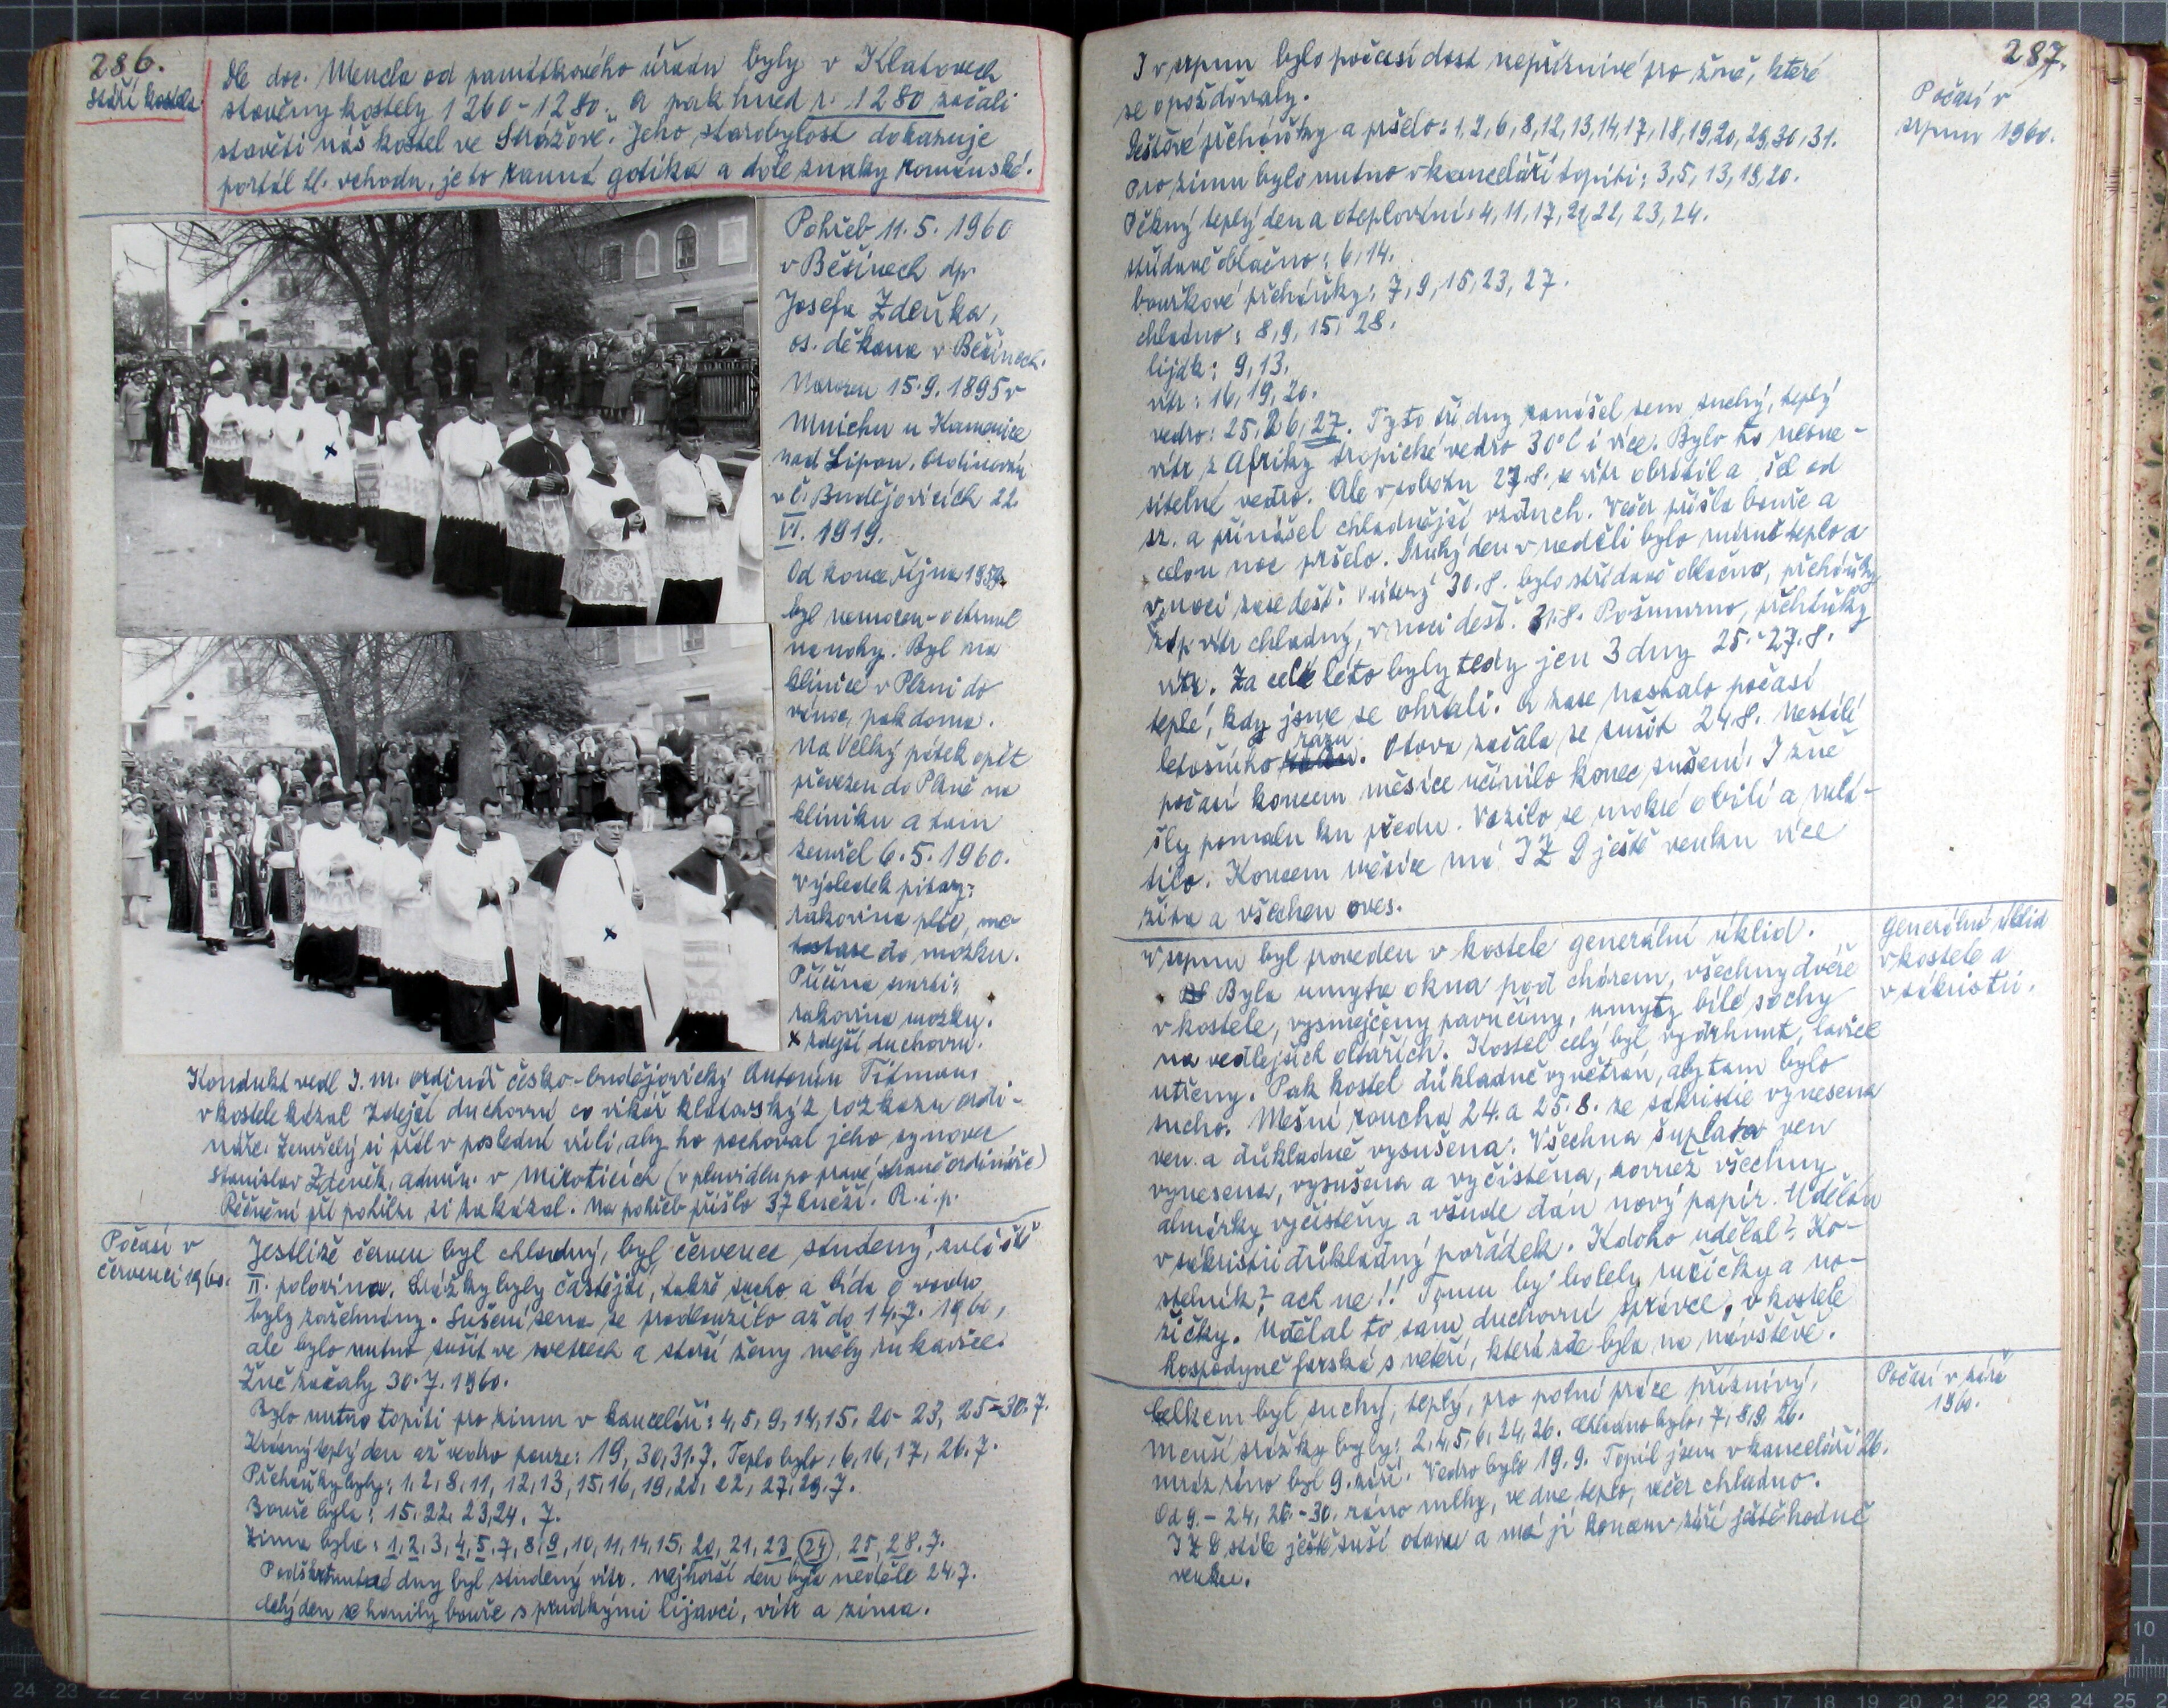 286.
Stáří kostela.
Dle doc. Mencla od památkového úřadu byly v Klatovech
stavěny kostely 1260-1280. A pak hned r. 1280 začali
stavěti náš kostel ve Strážově. Jeho starobylost dokazuje
portál hl. vchodu, je to ranná gotika a dole znaky románské.
Pohřeb 11.5.1960
v Běšinech dp.
Josefa Zdeňka,
os. děkana v Běšinech.
Narozen 15.9.1895 v
Mnichu u Kamenice
nad Lipou. Ordinován
v Č. Budějovicích 22.
VI. 1919.
Od konce října 1959
byl nemocen - ochrnul
na nohy. Byl na
klinice v Plzni do
vánoc, pak doma.
Na Velký pátek opět
převezen do Plzně na
kliniku a tam
zemřel 6.5.1960.
Výsledek pitvy:
rakovina plic, me-
tastase do mozku.
Příčina smrti:
rakovina mozku.
x zdejší duchovní.
Kondukt vedl J.m. ordinář česko-budějovický Antonín Titman,
v kostele kázal zdejší duchovní co vikář klatovský z rozkazu ordi-
náře. Zemřelý si přál v poslední vůli, aby ho pochoval jeho synovec
Stanislav Zdeněk, admin. v Miroticích (v pluviálu po pravé straně ordináře)
Řečnění při pohřbu si zakázal. Na pohřeb přišlo 37 kněží. R.i.p.
Počasí v
červenci 1960.
Jestliže červen byl chladný, byl červenec studený, zvláště
II. polovina. Srážky byly častější, takže sucho a bída o vodu
byly zažehnány. Sušení sena se prodloužilo až do 14.7. 1960,
ale bylo nutno sušit ve svetrech a starší ženy měly rukavice.
Žně začaly 30.7.1960.
Bylo nutno topiti pro zimu v kanceláři: 4, 5, 9, 14, 15, 20-23, 25-30.7.
Krásný teplý den až vedro pouze: 19, 30, 31.7. Teplo bylo: 6, 16, 17, 26.7.
Přeháňky byly: 1, 2, 8, 11, 12, 13, 15, 16, 19, 20, 22, 27, 29.7.
Bouře byla: 15, 22, 23, 24. 7.
Zima byla: 1, 2, 3, 4, 5, 7, 8, 9, 10, 11, 14, 15, 20, 21, 23, 24, 25, 28.7.
Podškrtnuté dny byl studený vítr. Nejhorší den byla neděle 24.7.
Celý den se honily bouře s prudkými lijavci, vítr a zima.
287.
Počasí v
srpnu 1960.
I v srpnu bylo počasí dost nepříznivé pro žně, které
se opožďovaly.
Dešťové přeháňky a pršelo: 1, 2, 6, 8, 12, 13, 14, 17, 18, 19, 20, 29, 30, 31.
Pro zimu bylo nutno v kanceláři topiti: 3, 5, 13, 19, 20.
Pěkný teplý den a oteplování: 4, 11, 17, 21, 22, 23, 24.
střídavě oblačno: 6, 14.
bouřkové přeháňky: 7, 9, 15, 23, 27.
chladno: 8, 9, 15, 28.
liják: 9, 13.
vítr: 16, 19, 20.
vedro: 25, 26, 27. Tyto tři dny zanášel sem suchý, teplý
vítr z Afriky tropické vedro 30°C i více. Bylo to nesne-
sitelné vedro. Ale v sobotu 27.8. se vítr obrátil a šel od
sz. a přinášel chladnější vzduch. Večer přišla bouře a
celou noc pršelo. Druhý den v neděli bylo mírně teplo a
v noci zase déšť. V úterý 30.8. bylo střídavě oblačno, přeháňky
záp. vítr chladný, v noci déšť. 31.8. Pošmurno, přeháňky
vítr. Za celé léto byly tedy jen 3 dny 25.-27.8.
teplé, kdy jsme se ohřáli. A zase nastalo počasí
letošního rázu. Otava začala se sušit 24.8. Nestálé
počasí koncem měsíce učinilo konec sušení. I žně
šly pomalu ku předu. Vozilo se mokré obilí a mlá-
tilo. Koncem měsíce má JZD ještě venku více
žita a všechen oves.
Generální úklid
v kostele a
v sákristii.
V srpnu byl proveden v kostele generální úklid.
Byla umyta okna pod chórem, všechny dveře
v kostele, vysmejčeny pavučiny, umyty bílé sochy
na vedlejších oltářích. Kostel celý byl vydrhnut, lavice
utřeny. Pak kostel důkladně vyvětrán, aby tam bylo
sucho. Mešní roucha 24. a 25.8. ze sákristie vynesena
ven a důkladně vysušena. Všechna šuplata ven
vynesena, vysušena a vyčistěna, rovněž všechny
almárky vyčistěny a všude dán nový papír. Udělán
v sákristii důkladný pořádek. Kdo ho udělal? Ko-
stelník? ach ne!! Tomu by bolely ručičky a no-
žičky. Udělal to sám duchovní správce, v kostele
hospodyně farská s neteří, která zde byla na návštěvě.
Počasí v září
1960.
Celkem byl suchý, teplý, pro polní práce příznivý,
Menší srážky byly: 2, 4, 5, 6, 24, 26. Chladno bylo: 7, 8, 9, 26.
mráz ráno byl 9. září. Vedro bylo 19.9. Topil jsem v kanceláři 26.
Od 9.-24, 26.-30. ráno mlhy, ve dne teplo, večer chladno.
JZD stále ještě suší otavu a má jí koncem září ještě hodně
venku.